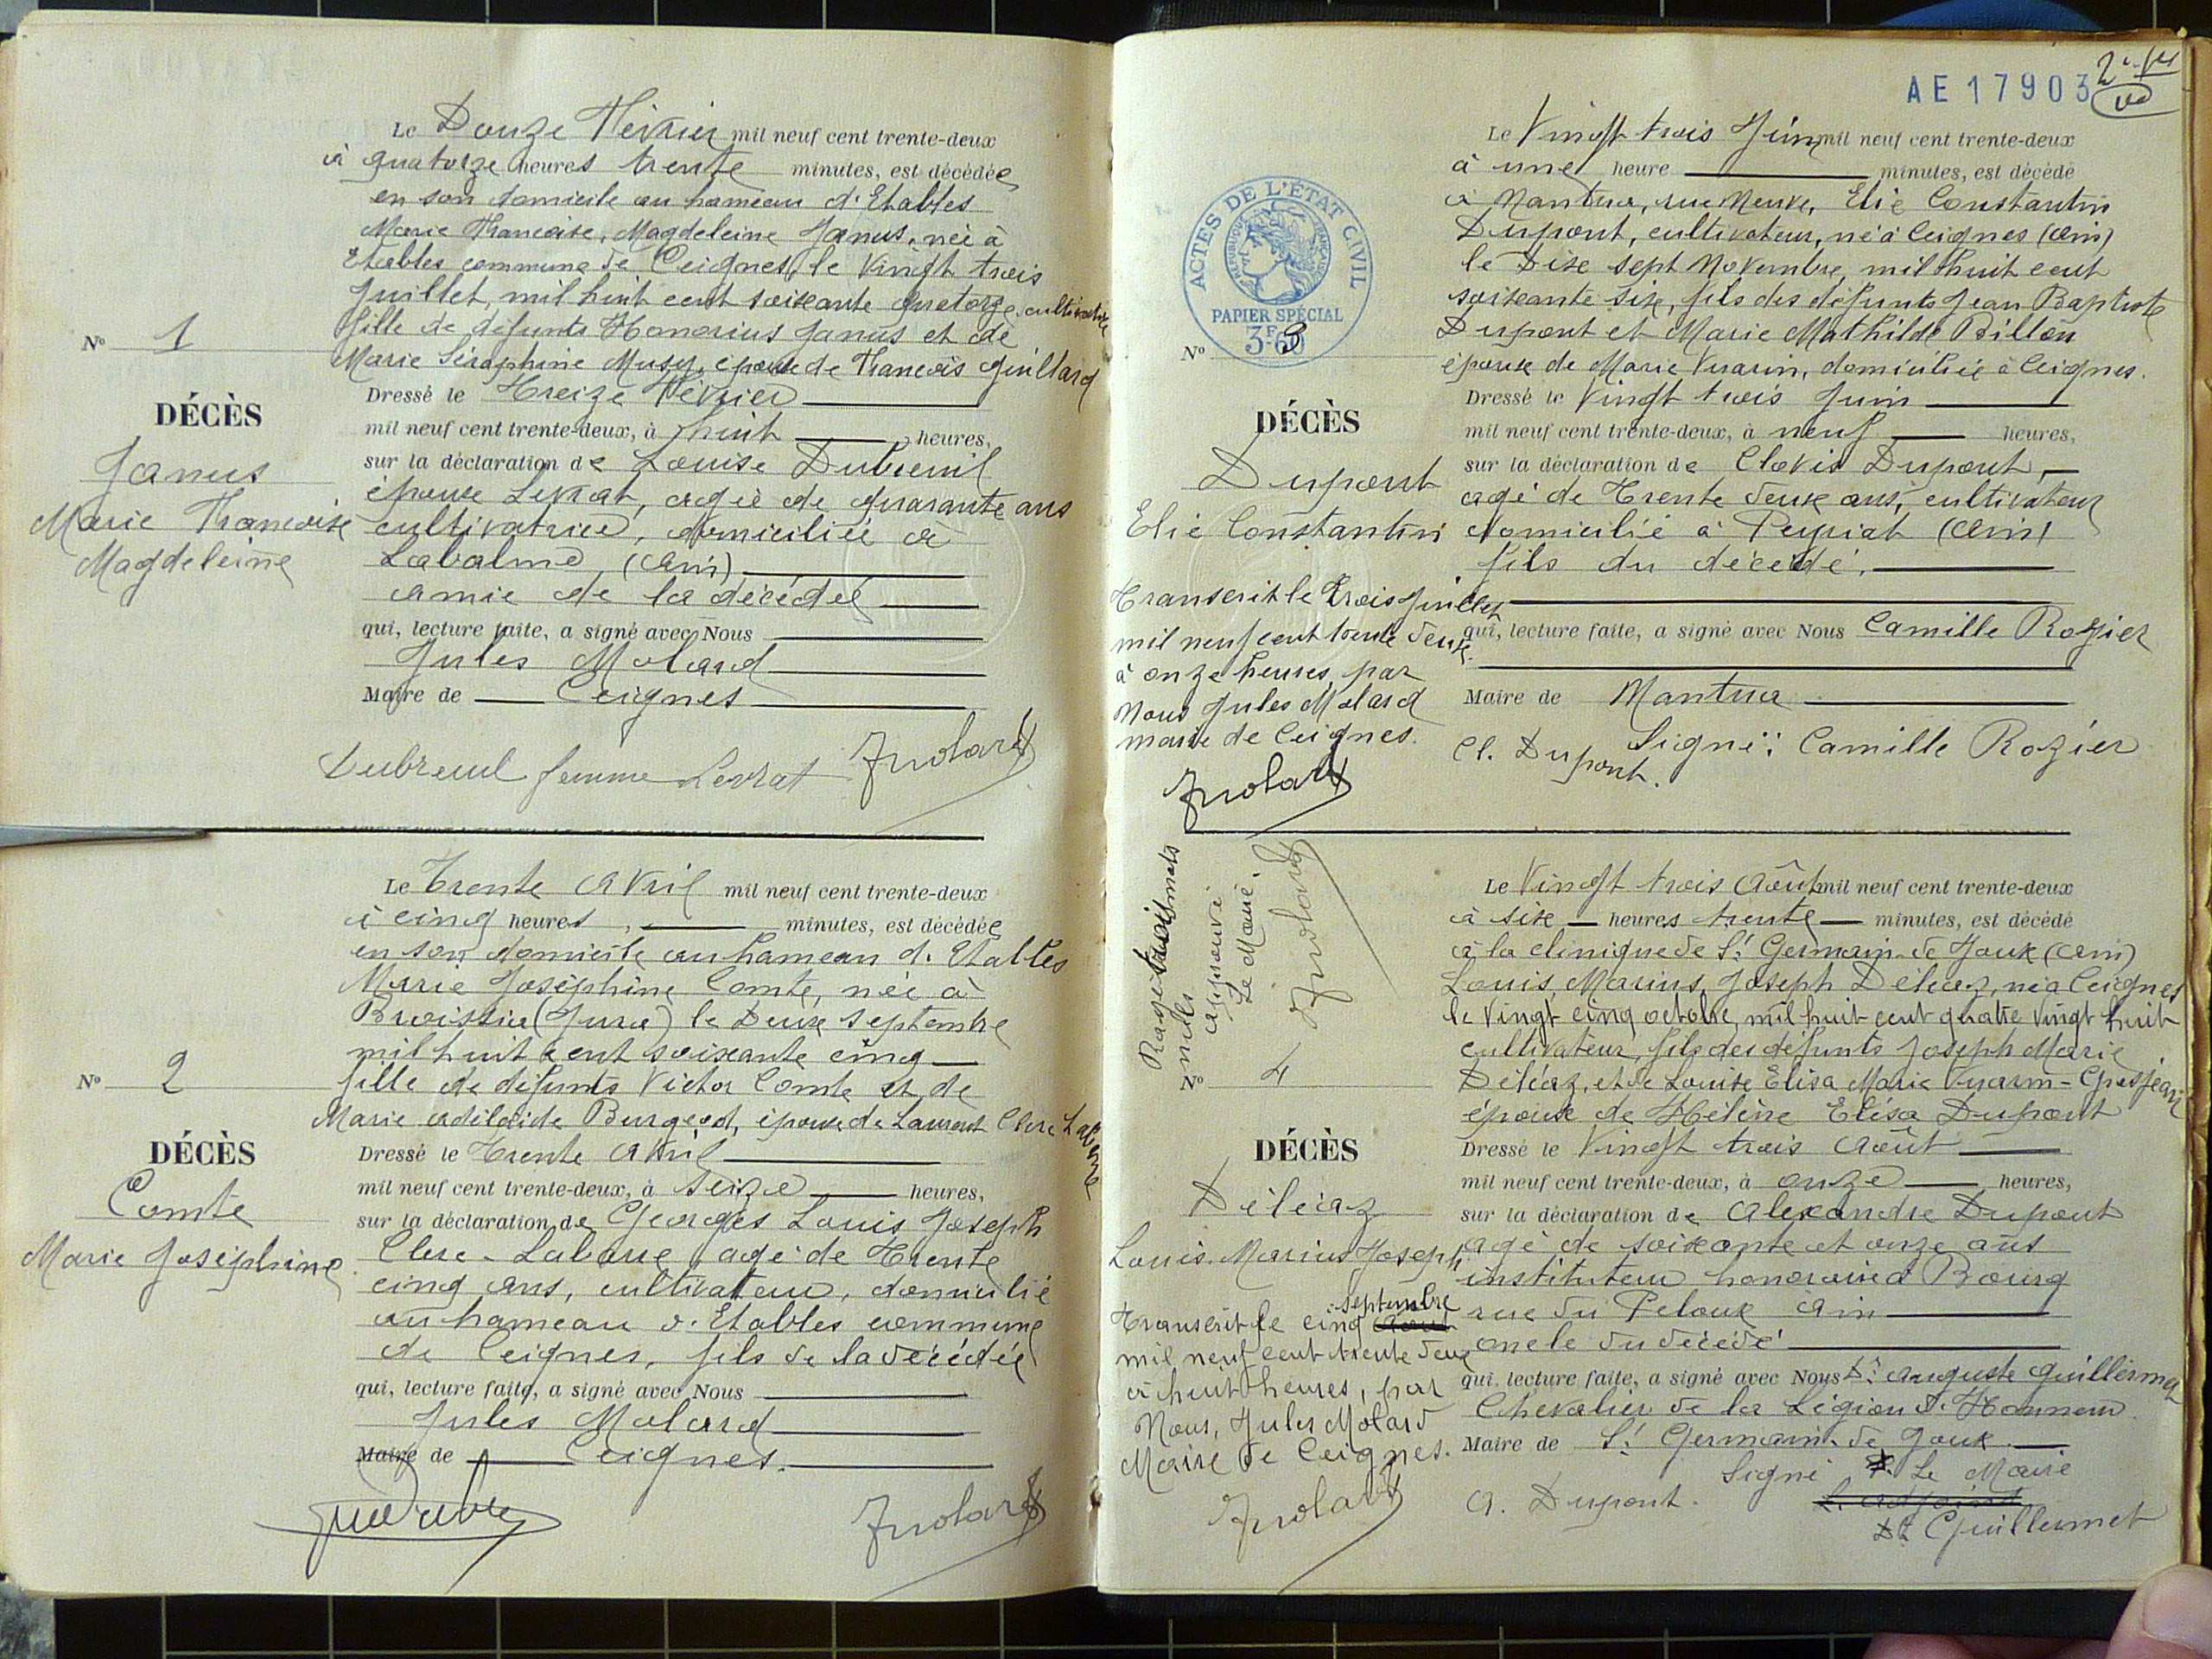 Le Douze Février mil neuf cent trente-deux
à quatorze heures trente minutes, est décédée
en son domicile au hameau d'Etables
Marie Françoise, Magdeleine Janus, née à
Etables commune de Ceignes, le vingt trois
juillet, mil huit cent soixante quatorze, cultivatrice
fille de défunts Honorius Janus et de
Marie Séraphine Musy, épouse de François Guillard
Nº 1
DÉCÈS
Janus
Marie Françoise
Magdeleine
Dressé le Treize Février
mil neuf cent trente-deux, à huit heures,
sur la déclaration de Louise Dubreuil
épouse Levrat, agée de quarante ans
cultivatrice, domiciliée à
Labalme, (Ain)
amie de la décédée
qui, lecture faite, a signé avec Nous
Jules Molard
Maire de Ceignes
Dubreuil femme Levrat JMolard
Le Trente Avril mil neuf cent trente-deux
à cinq heures, minutes, est décédée
en son domicile au hameau d'Etables
Marie Joséphine Comte, née à
(Jura) le Deux septembre
mil huit cent soixante cinq
fille de défunts Victor Comte et de
Marie Adélaïde Burgod, épouse de Laurent Clerc Labarre
Nº 2
DÉCÈS
Comte
Marie Joséphine
Dressé le Trente Avril
mil neuf cent trente-deux, à seize heures,
sur la déclaration de Georges Louis Joseph
Clerc-Labarre, agé de Trente
cinq ans, cultivateur, domicilié
au hameau d'Etables commune
de Ceignes, fils de la décédée
qui, lecture faite, a signé avec Nous
Jules Molard
Maire de Ceignes.
JMolard
AE17903
ACTES DE L'ÉTAT CIVIL
RÉPUBLIQUE FRANÇAISE
PAPIER SPÉCIAL
3F.60
Le Vingt trois Juin mil neuf cent trente-deux
à une heure minutes, est décédé
à Nantua, rue Neuve, Elie Constantin
Dupont, cultivateur, né à Ceignes (Ain)
le Dix sept Novembre, mil huit cent
soixante six, fils des défunts Jean Baptiste
Dupont et Marie Mathilde Billon
époux de Marie Vuarin, domiciliée à Ceignes.
Nº 3
DÉCÈS
Dupont
Elie Constantin
Dressé le Vingt trois Juin
mil neuf cent trente-deux, à neuf heures,
sur la déclaration de Clovis Dupont,
agé de Trente deux ans, cultivateur
domicilié à Peyriat (Ain)
fils du décédé.
qui, lecture faite, a signé avec Nous Camille Rozier
Maire de Nantua
Cl. Dupont. Signé: Camille Rozier
Transcrit le trois juillet
mil neuf cent trente deux
à onze heures, par
Nous Jules Molard
maire de Ceignes.
JMolard
nuls
approuvé
Le Maire.
JMolard
Le Vingt trois Août mil neuf cent trente-deux
à six heures trente minutes, est décédé
à la clinique de St Germain-de Joux (Ain)
Louis, Marius, Joseph Déléaz, né à Ceignes
le vingt cinq octobre, mil huit cent quatre vingt huit
cultivateur, fils des défunts Joseph Marie
Déléaz, et de Louise Elisa Marie Vuarin-Grosjean
époux de Hélène Elisa Dupont
Nº 4
DÉCÈS
Déléaz
Louis Marius Joseph
Dressé le Vingt trois Août
mil neuf cent trente-deux, à onze heures,
sur la déclaration de Alexandre Dupont
agé de soixante et onze ans
instituteur honoraire à Bourg
rue du Peloux Ain
oncle du décédé
qui, lecture faite, a signé avec Nous Dr Auguste Guillermet
Chevalier de la Légion d'Honneur
Maire de St Germain-de Joux
Signé Le Maire
A. Dupont. L'adjoint
Dr Guillermet
Transcrit le cinq août septembre
mil neuf cent trente deux
à huit heures, par
Nous, Jules Molard
Maire de Ceignes.
JMolard